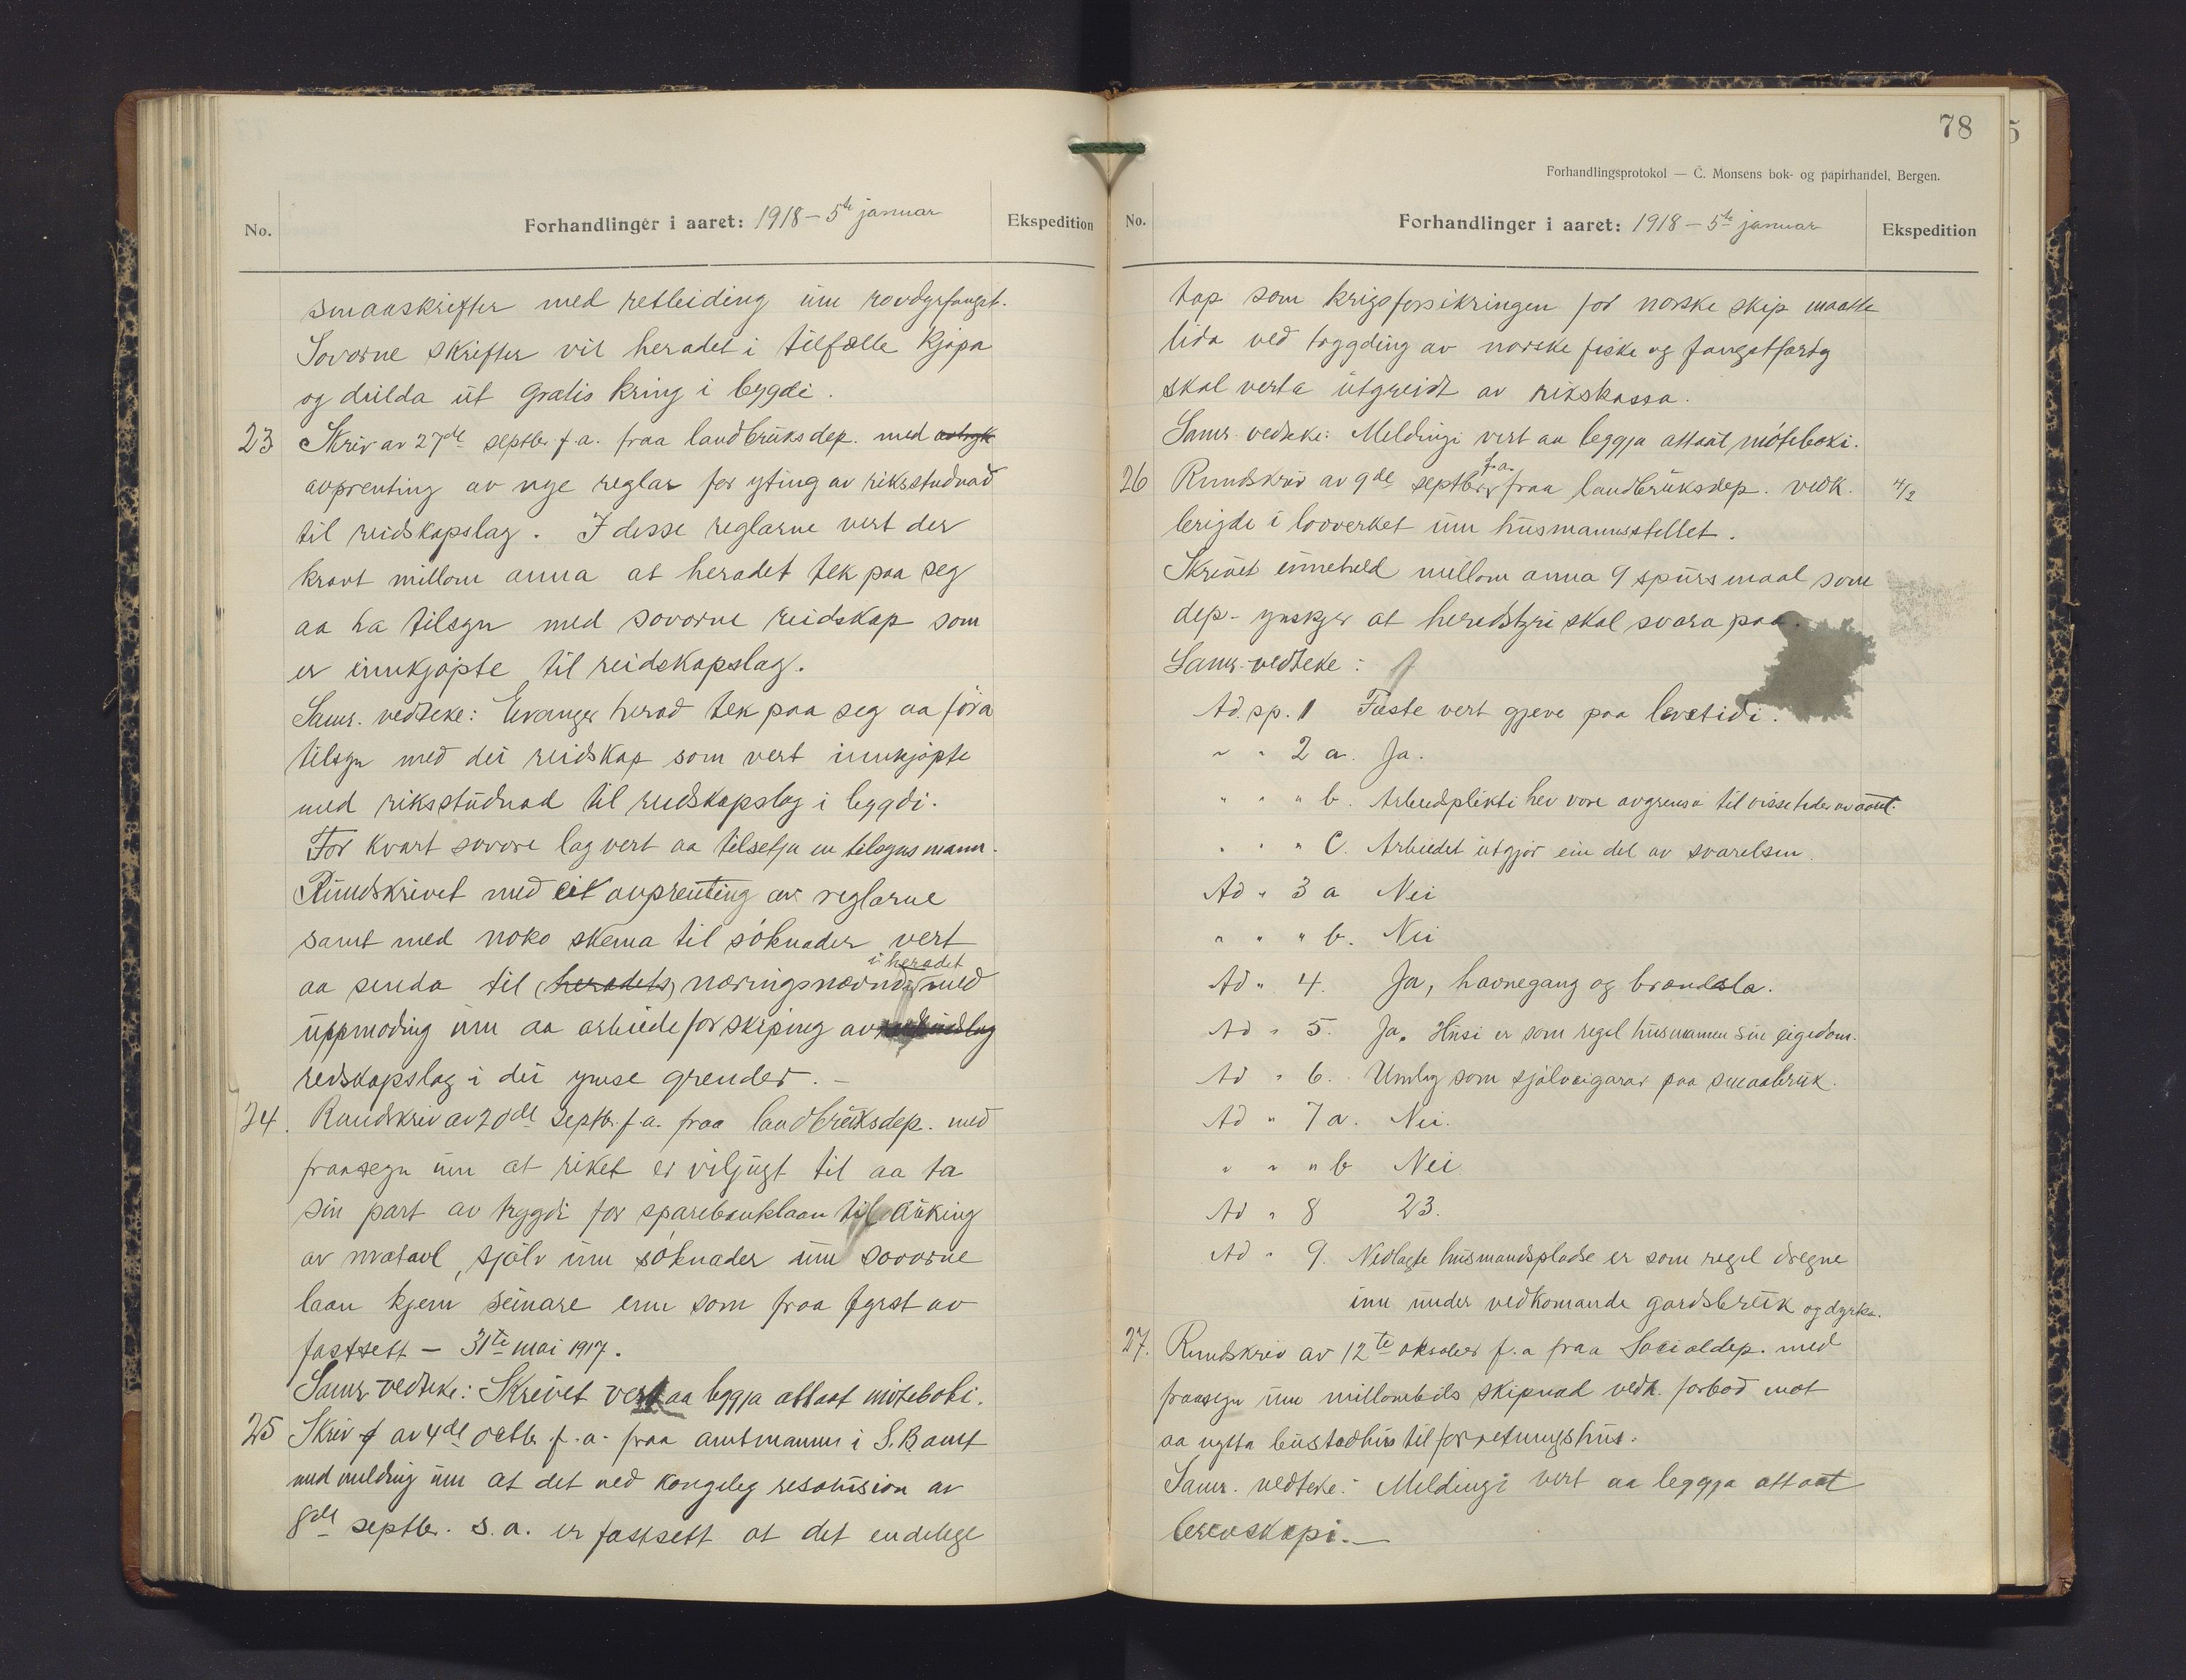 No.
Forhandlinger i aaret: 1918 – 5te januar
Ekspedition
smaaskrifter med retleiding um rovdyrfangst.
Sovorne skrifter vil heradet i tilfælle kjøpa
og deilda ut gratis kring i bygdi.
23 Skriv av 27de septbr f.a. fraa landbruksdep. med
avprenting av nye reglar for yting av riksstudnad
til reidskapslag. I desse reglarne vert der
kravt millom anna at heradet tek paa seg
aa ha tilsyn med sovorne reidskap som
er innkjøpte til reidskapslag.
Samr. vedteke: Evanger herad tek paa seg aa föra
tilsyn med dei reidskap som vert innkjøpte
med riksstudnad til reidskapslag i bygdi.
For kvart sovore lag vert aa tilsetja en tilsynsmann.
Rundskrivet med eit avprenting av reglarne
samt med noko skema til söknader vert
i heradet
aa senda til (heradets) næringsnævndi med
uppmoding um aa arbeide for skiping av
redskapslag i dei ymse grender. –
24. Rundskriv av 20de septbr. f.a. fraa landbruksdep. med
fraasegn um at riket er viljugt til aa ta
sin part av trygdi for sparebanklaan til auking
av matavl, sjölv um söknader um sovorne
laan kjem seinare enn som fraa fyrst av
fastsett – 31te mai 1917.
Samr. vedteke: Skrivet vert aa leggja attaat möteboki.
25 Skriv av 4de octbr. f.a. fraa amtmannen i S.B amt
med melding um at det ved kongeleg resolusion av
8de septbr. s.a. er fastsett at det endelege
78
Forhandlingsprotokol — C. Monsens bok- og papirhandel, Bergen.
No.
Forhandlinger i aaret: 1918 – 5te januar
Ekspedition
tap som krigsforsikringen for norske skip maatte
lida ved tryggding av norske fiske og fangstfartøy
skal verta utgreidt av rikskassa.
Samr. vedteke: Meldingi vert aa leggja attaat möteboki.
f.a.
26 Rundskriv av 9de septbr. fraa landbruksdep. vedk. 4/2
brigde i lovverket um husmannsstellet.
Skrivet inneheld millom anna 9 spursmaal som
dep. ynskjer at heredstyri skal svara paa.
Samr. vedteke:
Ad. sp. 1 Fæste vert gjeve paa levetidi.
" " 2 a. Ja.
" " " b. Arbeidplikti hev vore avgrensa til visse tider av aaret.
" " " C. Arbeidet utgjør ein del av svarelsen.
Ad " 3 a Nei
" " " b. Nei
Ad " 4. Ja, havnegang og brendsla.
Ad " 5. Ja. Husi er som regel husmannen sin eigedom.
Ad " 6. Umlag som sjölveigarar paa smaabruk.
Ad " 7 a. Nei.
" " " b Nei
Ad " 8 23.
Ad " 9. Nedlagte husmandspladse er som regel dregne
inn under vedkomande gardsbruk og dyrka.
27. Rundskriv av 12te oktober f.a fraa Socialdep. med
fraasegn um millombils skipnad vedk. forbod mot
aa nytta bustadhus til forretningshus.
Samr. vedteke: Meldingi vert aa leggja attaat
brevskapi. –